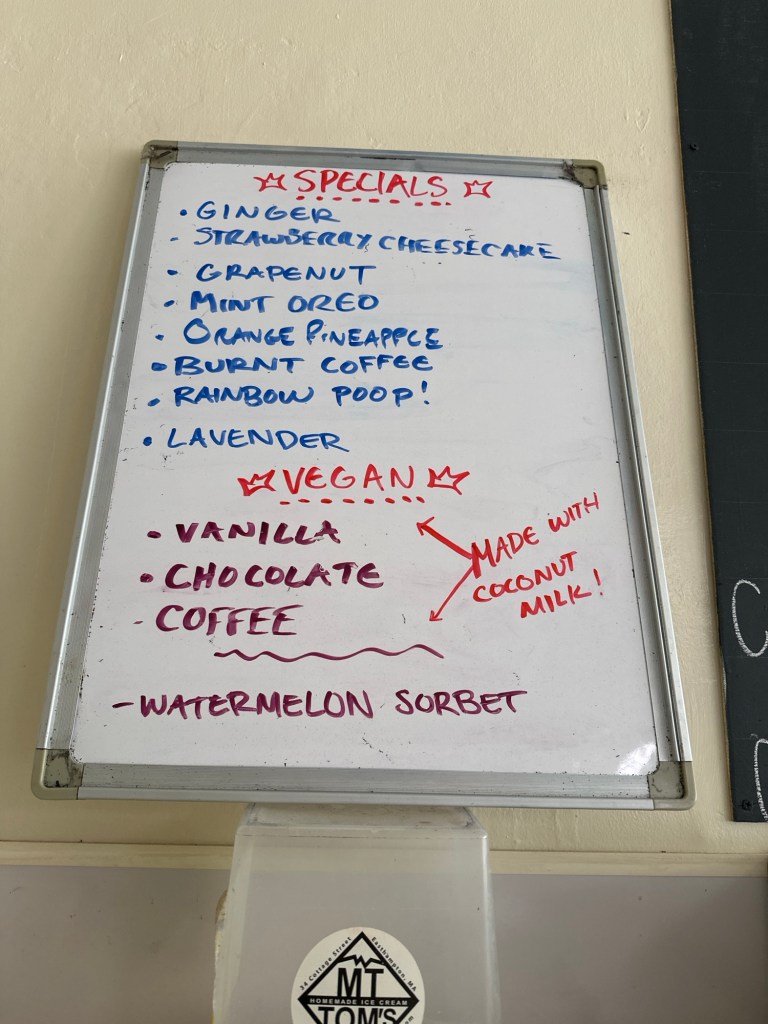 SPECIALS
• GINGER
- STRAWBERRY CHEESECAKE
• GRAPENUT
• MINT OREO
• ORANGE PINEAPPLE
• BURNT COFFEE
• RAINBOW POOP!
• LAVENDER
VEGAN
• VANILLA
• CHOCOLATE
- COFFEE
MADE WITH
COCONUT
MILK!
- WATERMELON SORBET
34 Cottage Street Easthampton, MA
MT
HOMEMADE ICE CREAM
TOM'S